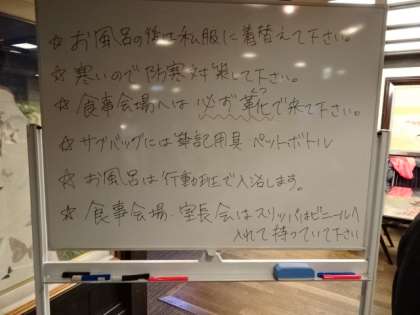 ☆お風呂の後は私服に着替えて下さい。
☆寒いので防寒対策して下さい。
☆食事会場へは必ず靴で来て下さい。
☆サブバッグには筆記用具 ペットボトル
☆お風呂は行動班で入浴します。
☆食事会場・室長会はスリッパはビニールへ
入れて持っていて下さい